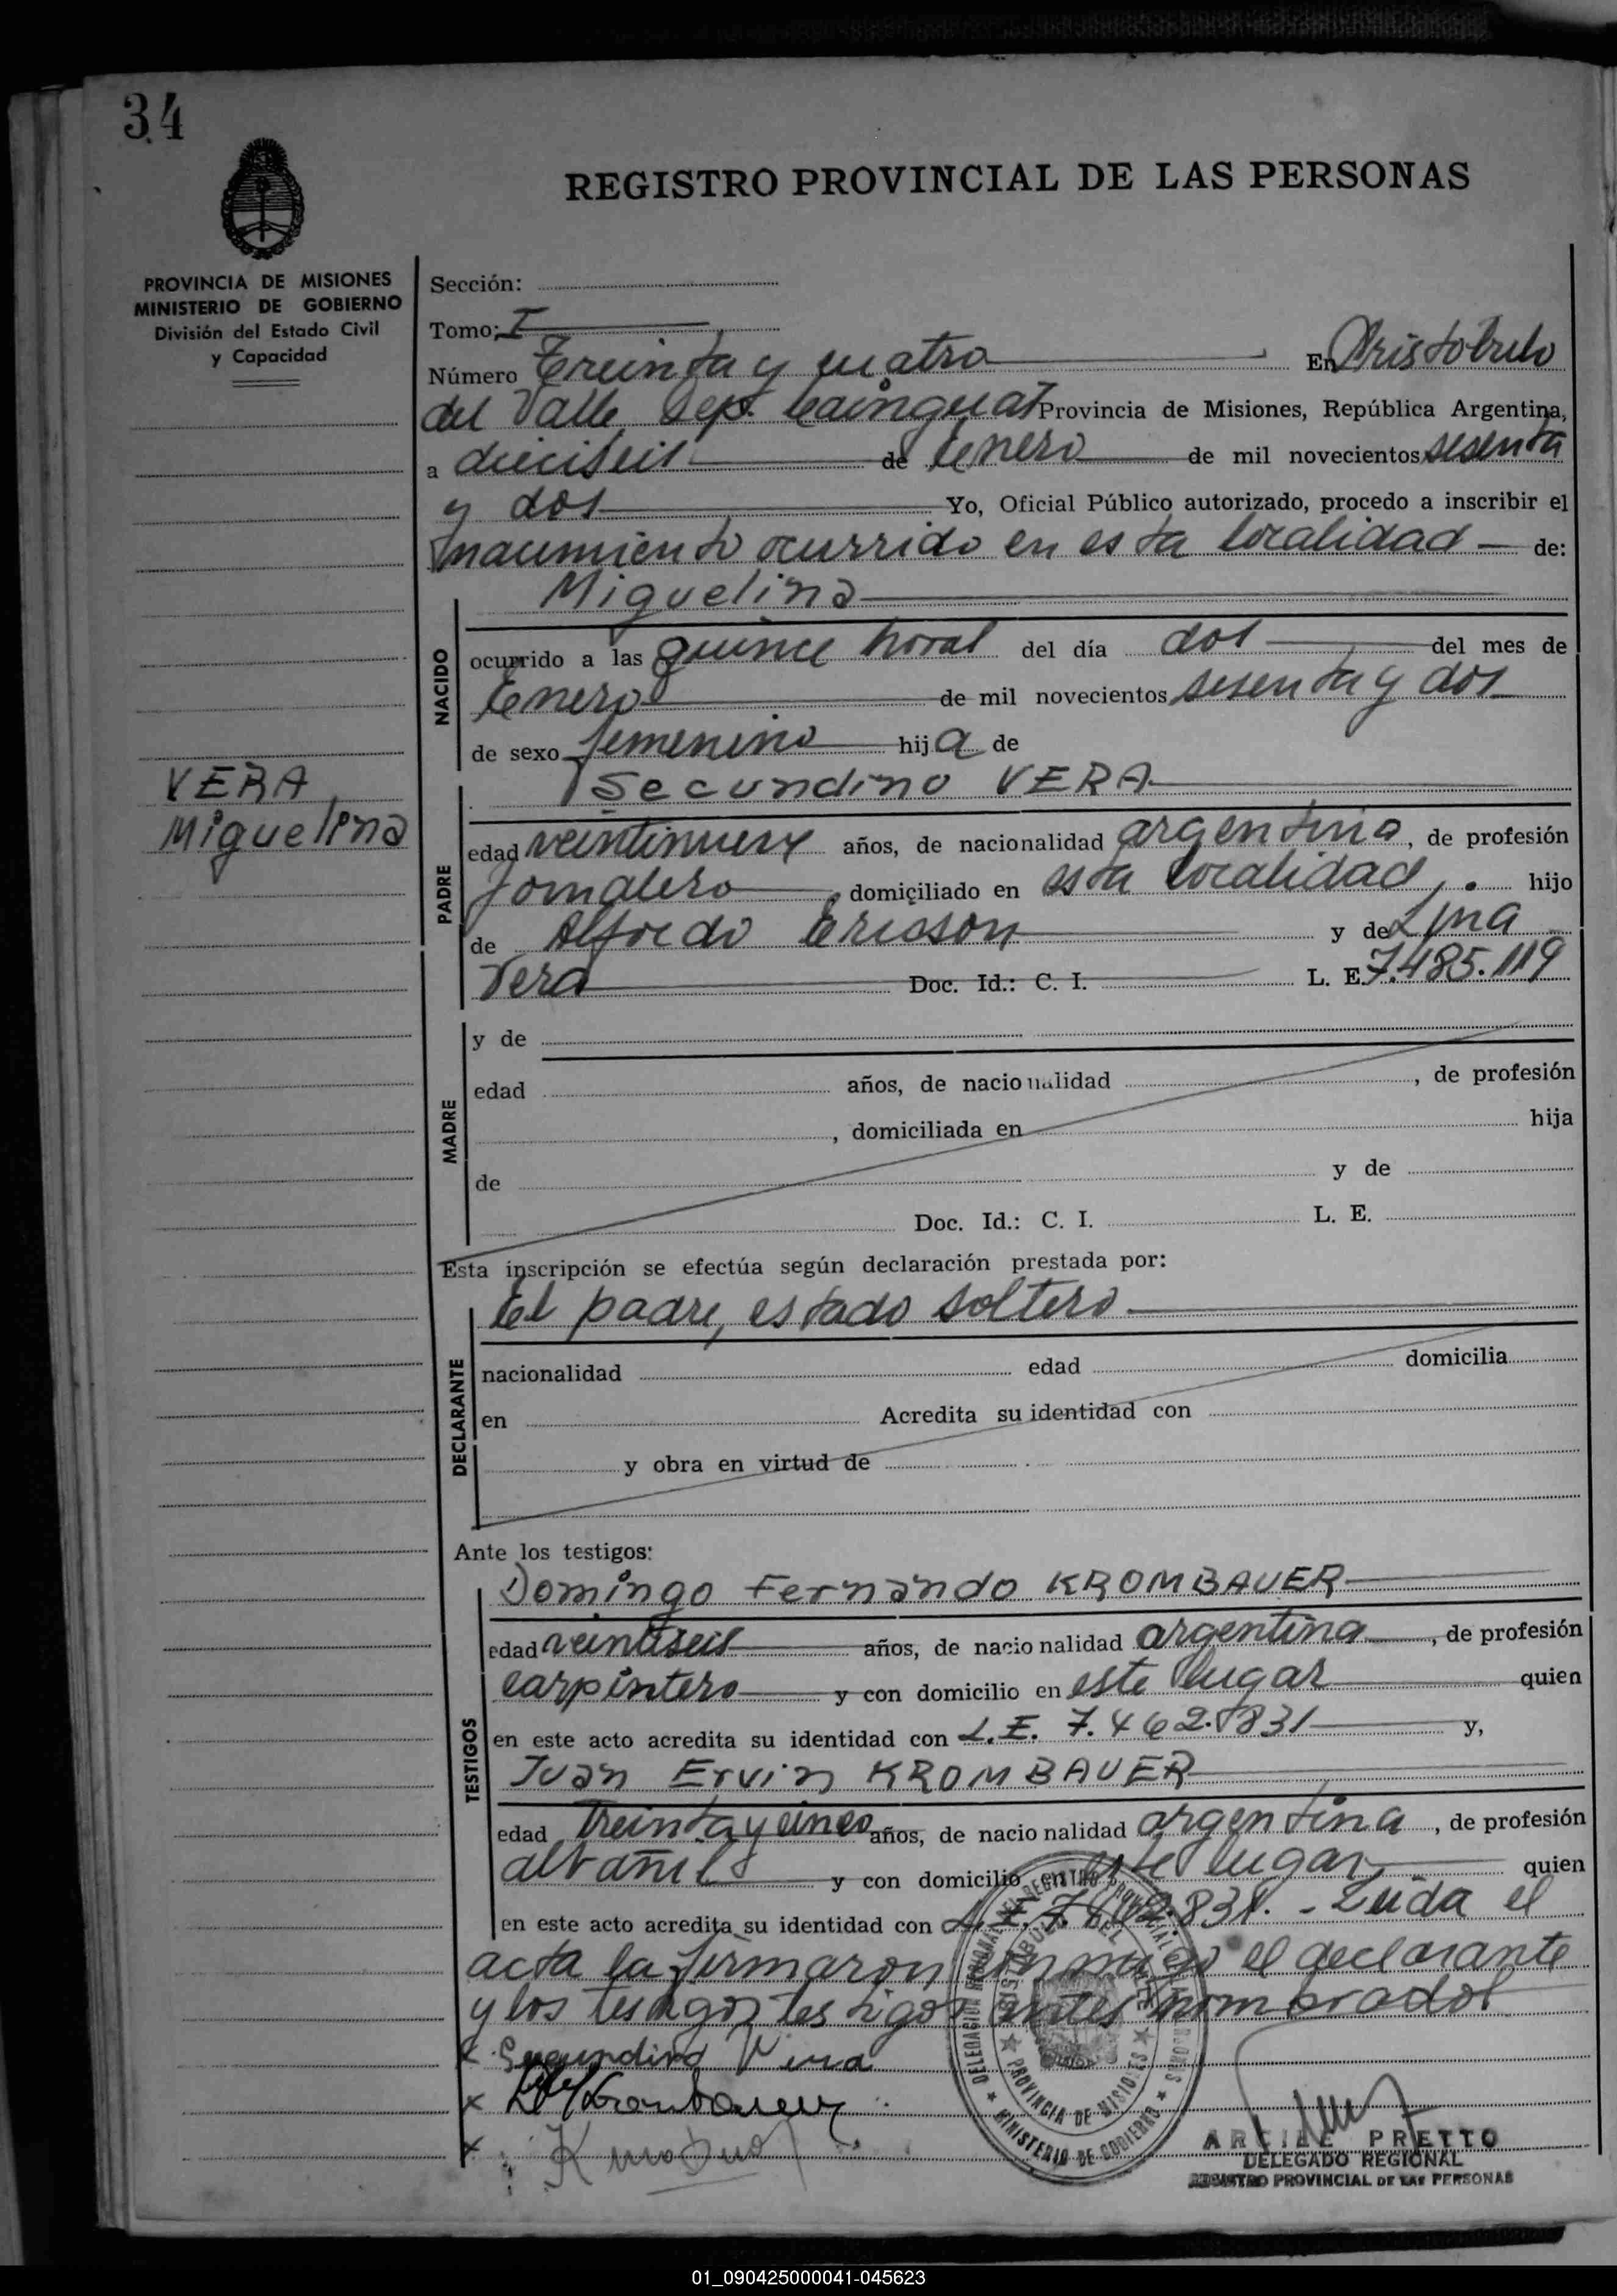 34
REGISTRO PROVINCIAL DE LAS PERSONAS
PROVINCIA DE MISIONES
MINISTERIO DE GOBIERNO
División del Estado Civil
y Capacidad
Sección:
Tomo: I
Número Treinta y cuatro En Aristobulo
del Valle, Dep. Cainguas Provincia de Misiones, República Argentina,
a dieciseis de Enero de mil novecientos sesenta
y dos Yo, Oficial Público autorizado, procedo a inscribir el
nacimiento ocurrido en esta localidad de:
Miguelina
NACIDO
ocurrido a las quince horas del día dos del mes de
Enero de mil novecientos sesenta y dos
de sexo femenino hija de
Secundino VERA
VERA
Miguelina
PADRE
edad veintinueve años, de nacionalidad argentina, de profesión
Jornalero, domiciliado en esta localidad, hijo
de Alfredo Ericson y de Lina
Vera Doc. Id.: C. I. L. E. 7.485.119
MADRE
y de
edad años, de nacionalidad , de profesión
, domiciliada en hija
de y de
Doc. Id.: C. I. L. E.
Esta inscripción se efectúa según declaración prestada por:
El padre, estado soltero
DECLARANTE
nacionalidad edad domicilia
en Acredita su identidad con
y obra en virtud de
Ante los testigos:
Domingo Fernando KROMBAUER
TESTIGOS
edad veintiseis años, de nacionalidad argentina, de profesión
carpintero y con domicilio en este lugar quien
en este acto acredita su identidad con L.E. 7.462.831 y,
Juan Ervin KROMBAUER
edad Treinta y cinco años, de nacionalidad argentina, de profesión
albañil y con domicilio en este lugar, quien
en este acto acredita su identidad con L.E. 7.462.831. - Leida el
acta la firmaron conmigo el declarante
y los testigos testigos antes nombrados
x Segundino Vera
x Krombauer
x
DELEGACION REGIONAL DEL REGISTRO PROVINCIAL DE LAS PERSONAS
ARISTOBULO DEL VALLE
PROVINCIA DE MISIONES
MINISTERIO DE GOBIERNO
PRETTO
DELEGADO REGIONAL
REGISTRO PROVINCIAL DE LAS PERSONAS
01_090425000041-045623